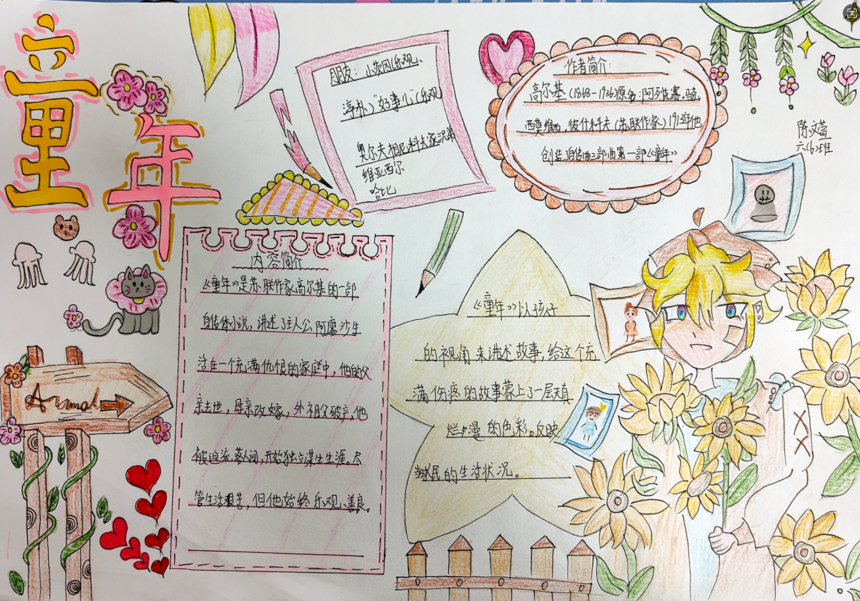 童年
朋友：小茨冈(乐观、
淳朴)"好事儿"(乐观
奥尔夫相尼科夫家兄弟
维亚西尔
哈比
作者简介：
高尔基(1868-1936)原名：阿列克塞·
西莫维奇·彼什科夫(苏联作家)1913年他
创造自传曲三部曲第一部《童年》
陈文萱
六(6)班
内容简介
《童年》是苏联作家高尔基的一部
自传体小说，讲述了主人公阿廖沙生
活在一个充满仇恨的家庭中，他的父
亲去世，母亲改嫁，外祖父破产，他
被迫流落人间，开始独立谋生生涯。尽
管生活艰辛，但他始终乐观、善良。
《童年》以孩子
的视角来讲述故事，给这个充
满伤疼的故事蒙上了一层天真
烂漫的色彩。反映
民的生活状况。
Animal